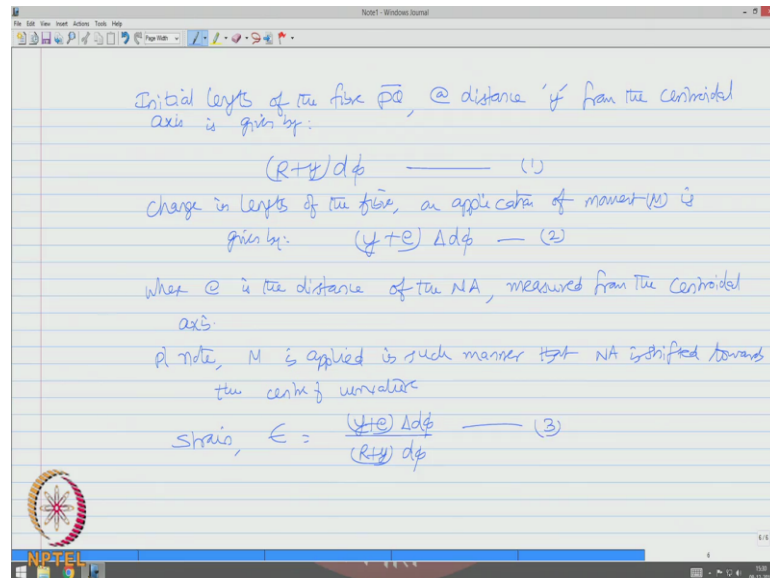 Note1 - Windows Journal
File Edit View Insert Actions Tools Help
Page Width
Initial length of the fibre PQ, @ distance 'y' from the centroidal
axis is given by:
(R+y) dϕ ——— (1)
change in length of the fibre, on application of moment (M) is
given by: (y+e) Δdϕ — (2)
where e is the distance of the NA, measured from the centroidal
axis.
pl note, M is applied is such manner that NA is shifted towards
the centre of curvature
strain, ϵ = (y+e) Δdϕ / (R+y) dϕ ——— (3)
NPTEL
6/6
6
15:00